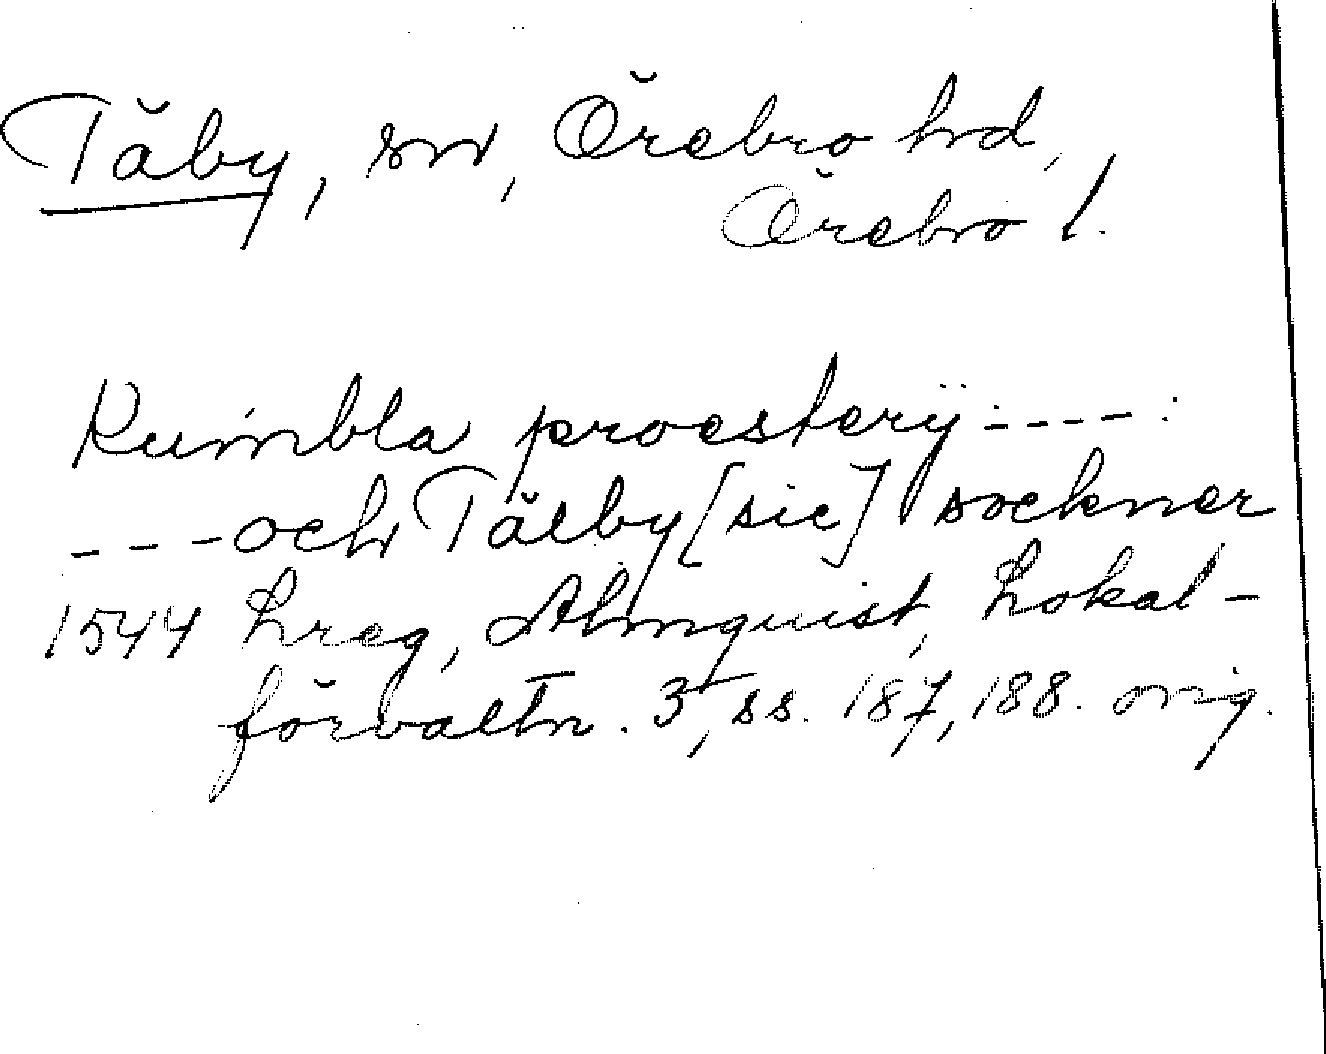 Täby, sn, Örebro hd,
Örebro l.
Kumbla proestery ----:
---och Tälby [sic] sockner
1544 Lreg, Almquist, Lokal-
förvaltn. 3, ss. 187, 188. orig.